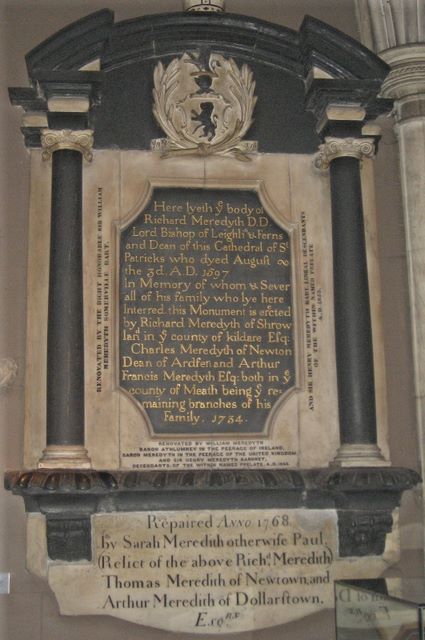 Here lyeth yᵉ body of
Richard Meredyth D.D.
Lord Bishop of Leighlⁿ & Ferns
and Dean of this Cathedral of Sᵗ
Patricks who dyed August
the 3d. A.D. 1597
In Memory of whom & Sever
all of his family who lye here
Interred. this Monument is erected
by Richard Meredyth of Shrow
land in yᵉ county of kildare Esq:
Charles Meredyth of Newton
Dean of Ardfert and Arthur
Francis Meredyth Esq: both in yᵉ
county of Meath being yᵉ re-
maining branches of his
Family. 1734.
RENOVATED BY THE RIGHT HONORABLE SIR WILLIAM
MEREDYTH SOMERVILLE BART.
AND SIR HENRY MEREDYTH BART. LINEAL DESCENDANTS
OF THE WITHIN NAMED PRELATE
RENOVATED BY WILLIAM MEREDYTH
BARON ATHLUMNEY IN THE PEERAGE OF IRELAND,
BARON MEREDYTH IN THE PEERAGE OF THE UNITED KINGDOM
AND SIR HENRY MEREDYTH BARONET,
DEFENDANTS OF THE WITHIN NAMED PRELATE, A.D.
Repaired Anno 1768.
by Sarah Meredith otherwise Paul,
(Relict of the above Richᵈ. Meredith)
Thomas Meredith of Newtown, and
Arthur Meredith of Dollarstown,
Esqʳˢ.